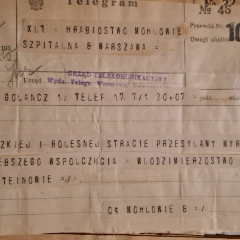 Telegram
№ 46
XLT = HRABIOSTWO MOHLOWIE
SZPITALNA 8 WARSZAWA =
Przewód №
Uwagi służb
10
Urząd
URZĄD TELEKOMUNIKACYJNY
GOLANCZ 1/ TELEF 17 7/1 20.07 =
ZKIEJ I BOLESNEJ STRACIE PRZESYLAMY WYR
EBSZEGO WSPOLCZUCIA = WLODZIMIERZOSTWO
TEINOWIE =/.
C§ MOHLOWIE 8 =/